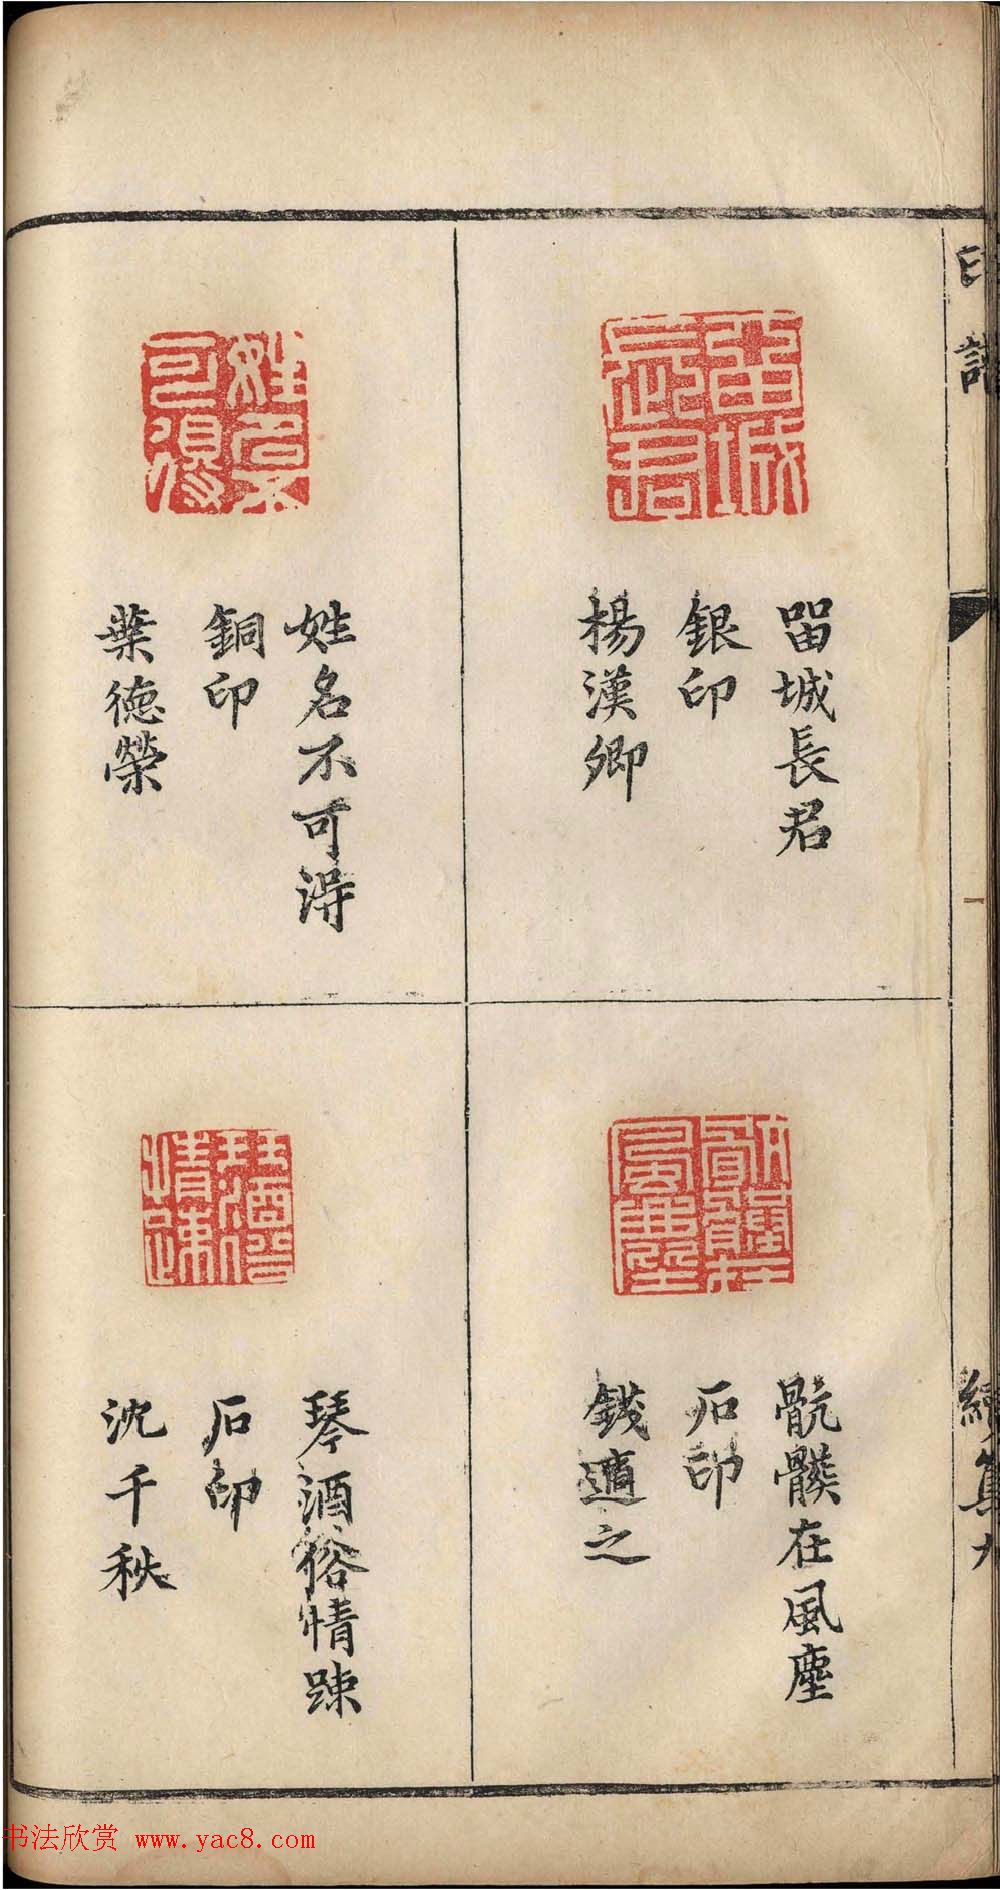 印譜
續集九
留城長君
銀印
楊漢卿
骯髒在風塵
石印
錢適之
姓名不可淂
銅印
葉德榮
琴酒俗情踈
石印
沈千秋
书法欣赏 www.yac8.com